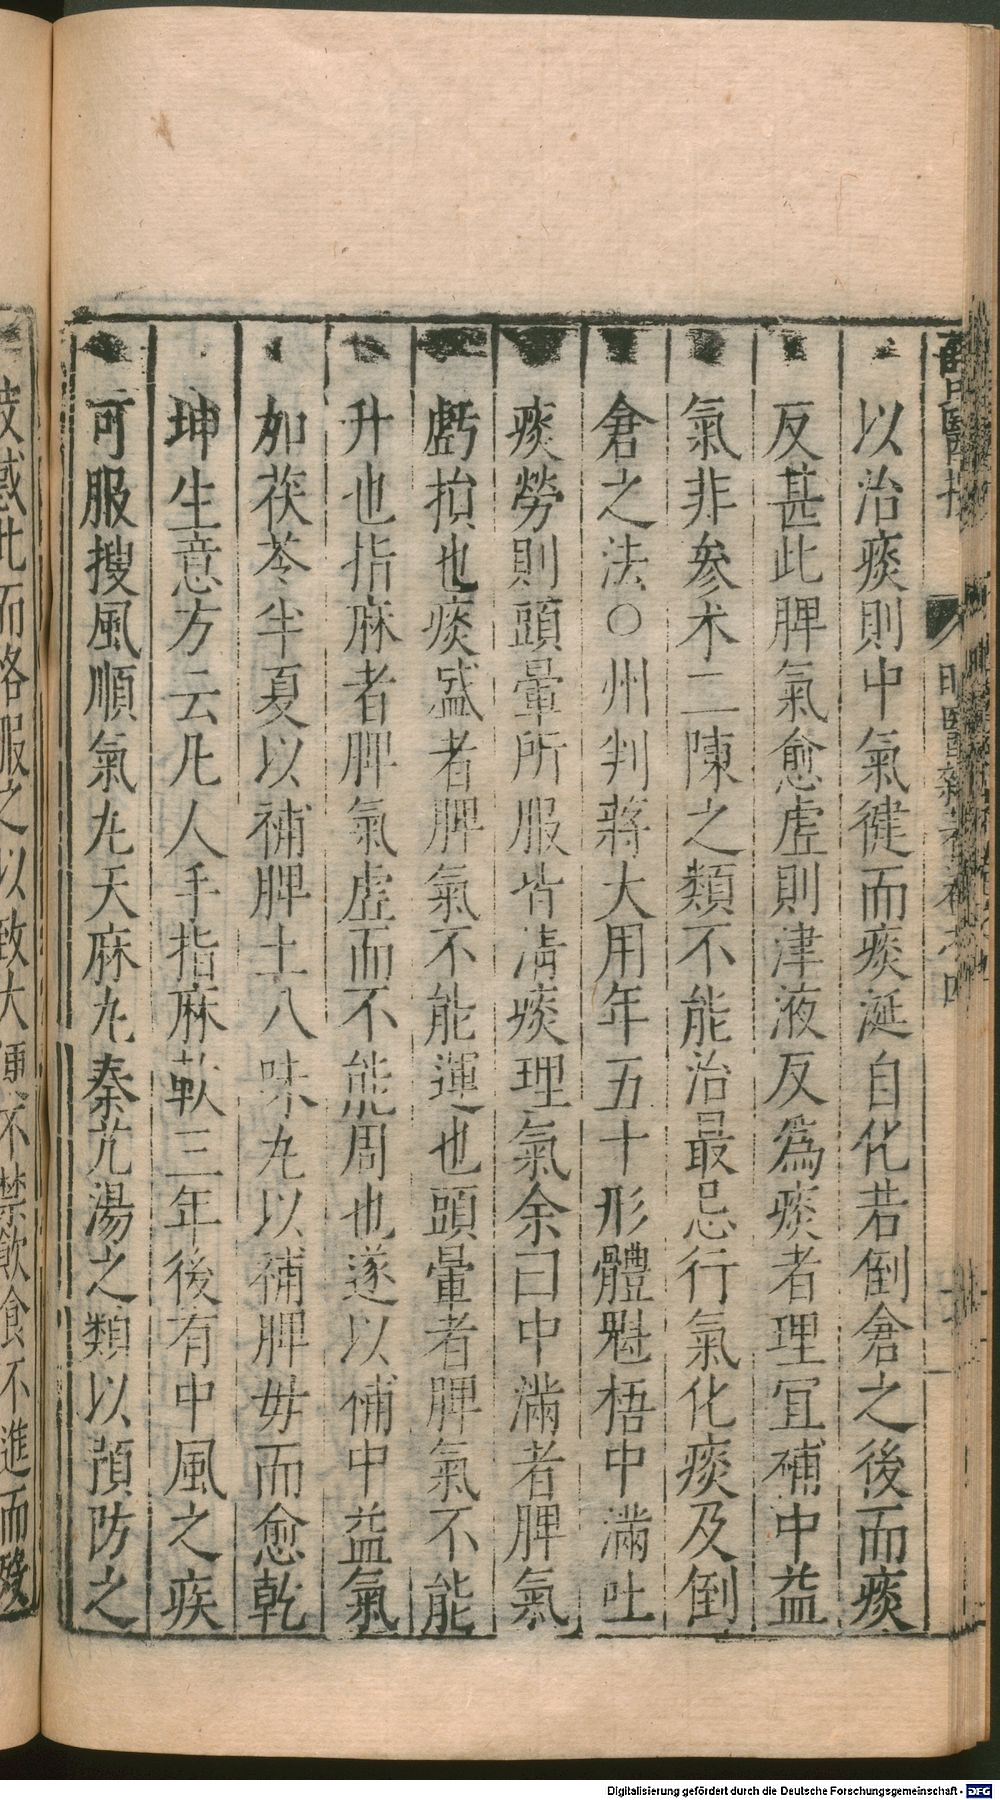 以治痰則中氣徤而痰涎自化若倒倉之後而痰
反甚此脾氣愈虛則津液反為痰者理冝補中益
氣非參术二陳之類不能治最忌行氣化痰及倒
倉之法○州判蔣大用年五十形體魁梧中滿吐
痰勞則頭暈所服皆清痰理氣余曰中滿者脾氣
虧損也痰盛者脾氣不能運也頭暈者脾氣不能
升也指麻者脾氣虛而不能周也遂以補中益氣
如茯苓半夏以補脾土八味丸以補脾母而愈乾
坤生意方云凡人手指麻軟三年後有中風之疾
可服搜風順氣丸天麻丸秦艽湯之類以預防之
而服之以致大便不禁飲食不進而歿
Digitalisierung gefördert durch die Deutsche Forschungsgemeinschaft - DFG